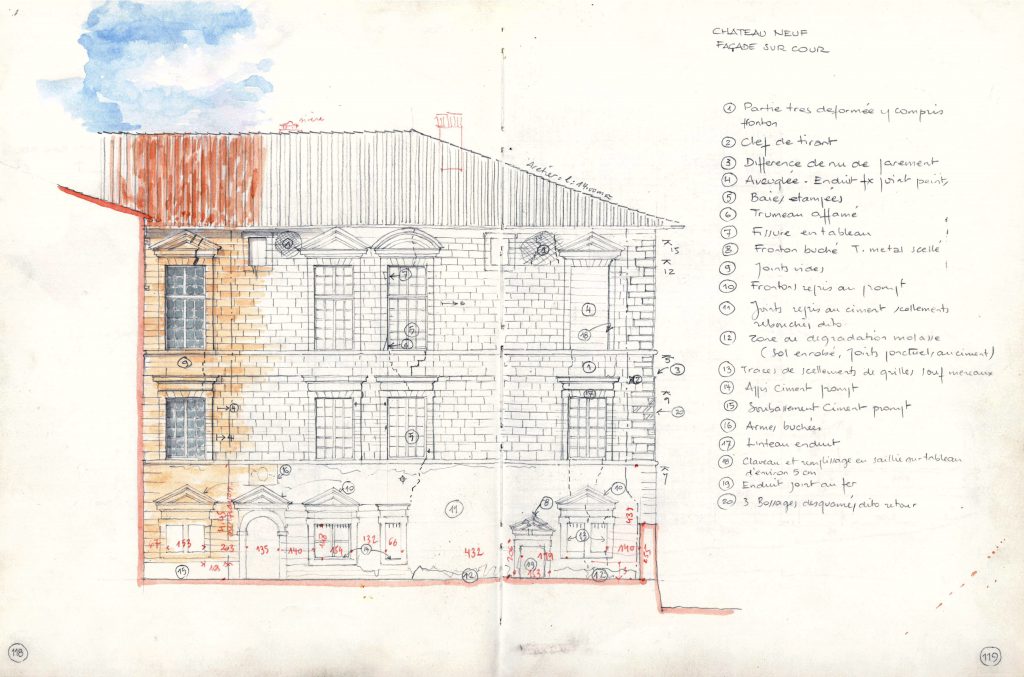 CHATEAU NEUF
FAÇADE SUR COUR
① Partie tres deformée y compris
fronton
② Clef de tirant
③ Difference de nu de parement
④ Aveuglée - Enduit fx joint points
⑤ Baies etampées
⑥ Trumeau affamé
⑦ Fissure en tableau
⑧ Fronton buché T. metal scellé
⑨ Joints vides
⑩ Frontons repris au prompt
⑪ Joints repris au ciment scellements
rebouchés dito
⑫ Zone de degradation molasse
(Sol enrobé, Joints ponctuels au ciment)
⑬ Traces de scellements de grilles sauf meneaux
⑭ Appui Ciment prompt
⑮ Soubassement Ciment prompt
⑯ Armes buchées
⑰ Linteau enduit
⑱ Claveau et remplissage en saillie sur tableau
d'environ 5 cm
⑲ Enduit joint au fer
⑳ 3 Bossages desquamés dito retour
15
12
5
9
7
153
203
135
140
132
66
432
140
431
118
119